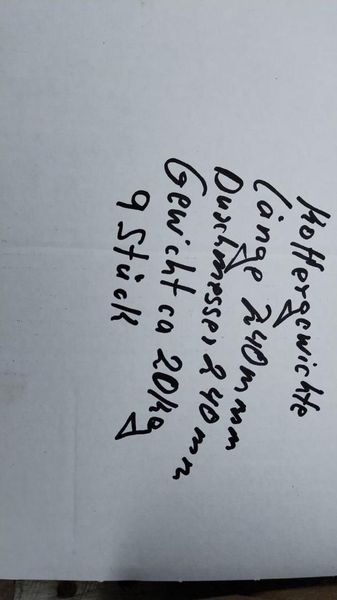 Koffergewichte
Länge 240mmm
Durchmesser 240mm
Gewicht ca 20kg
9 Stück